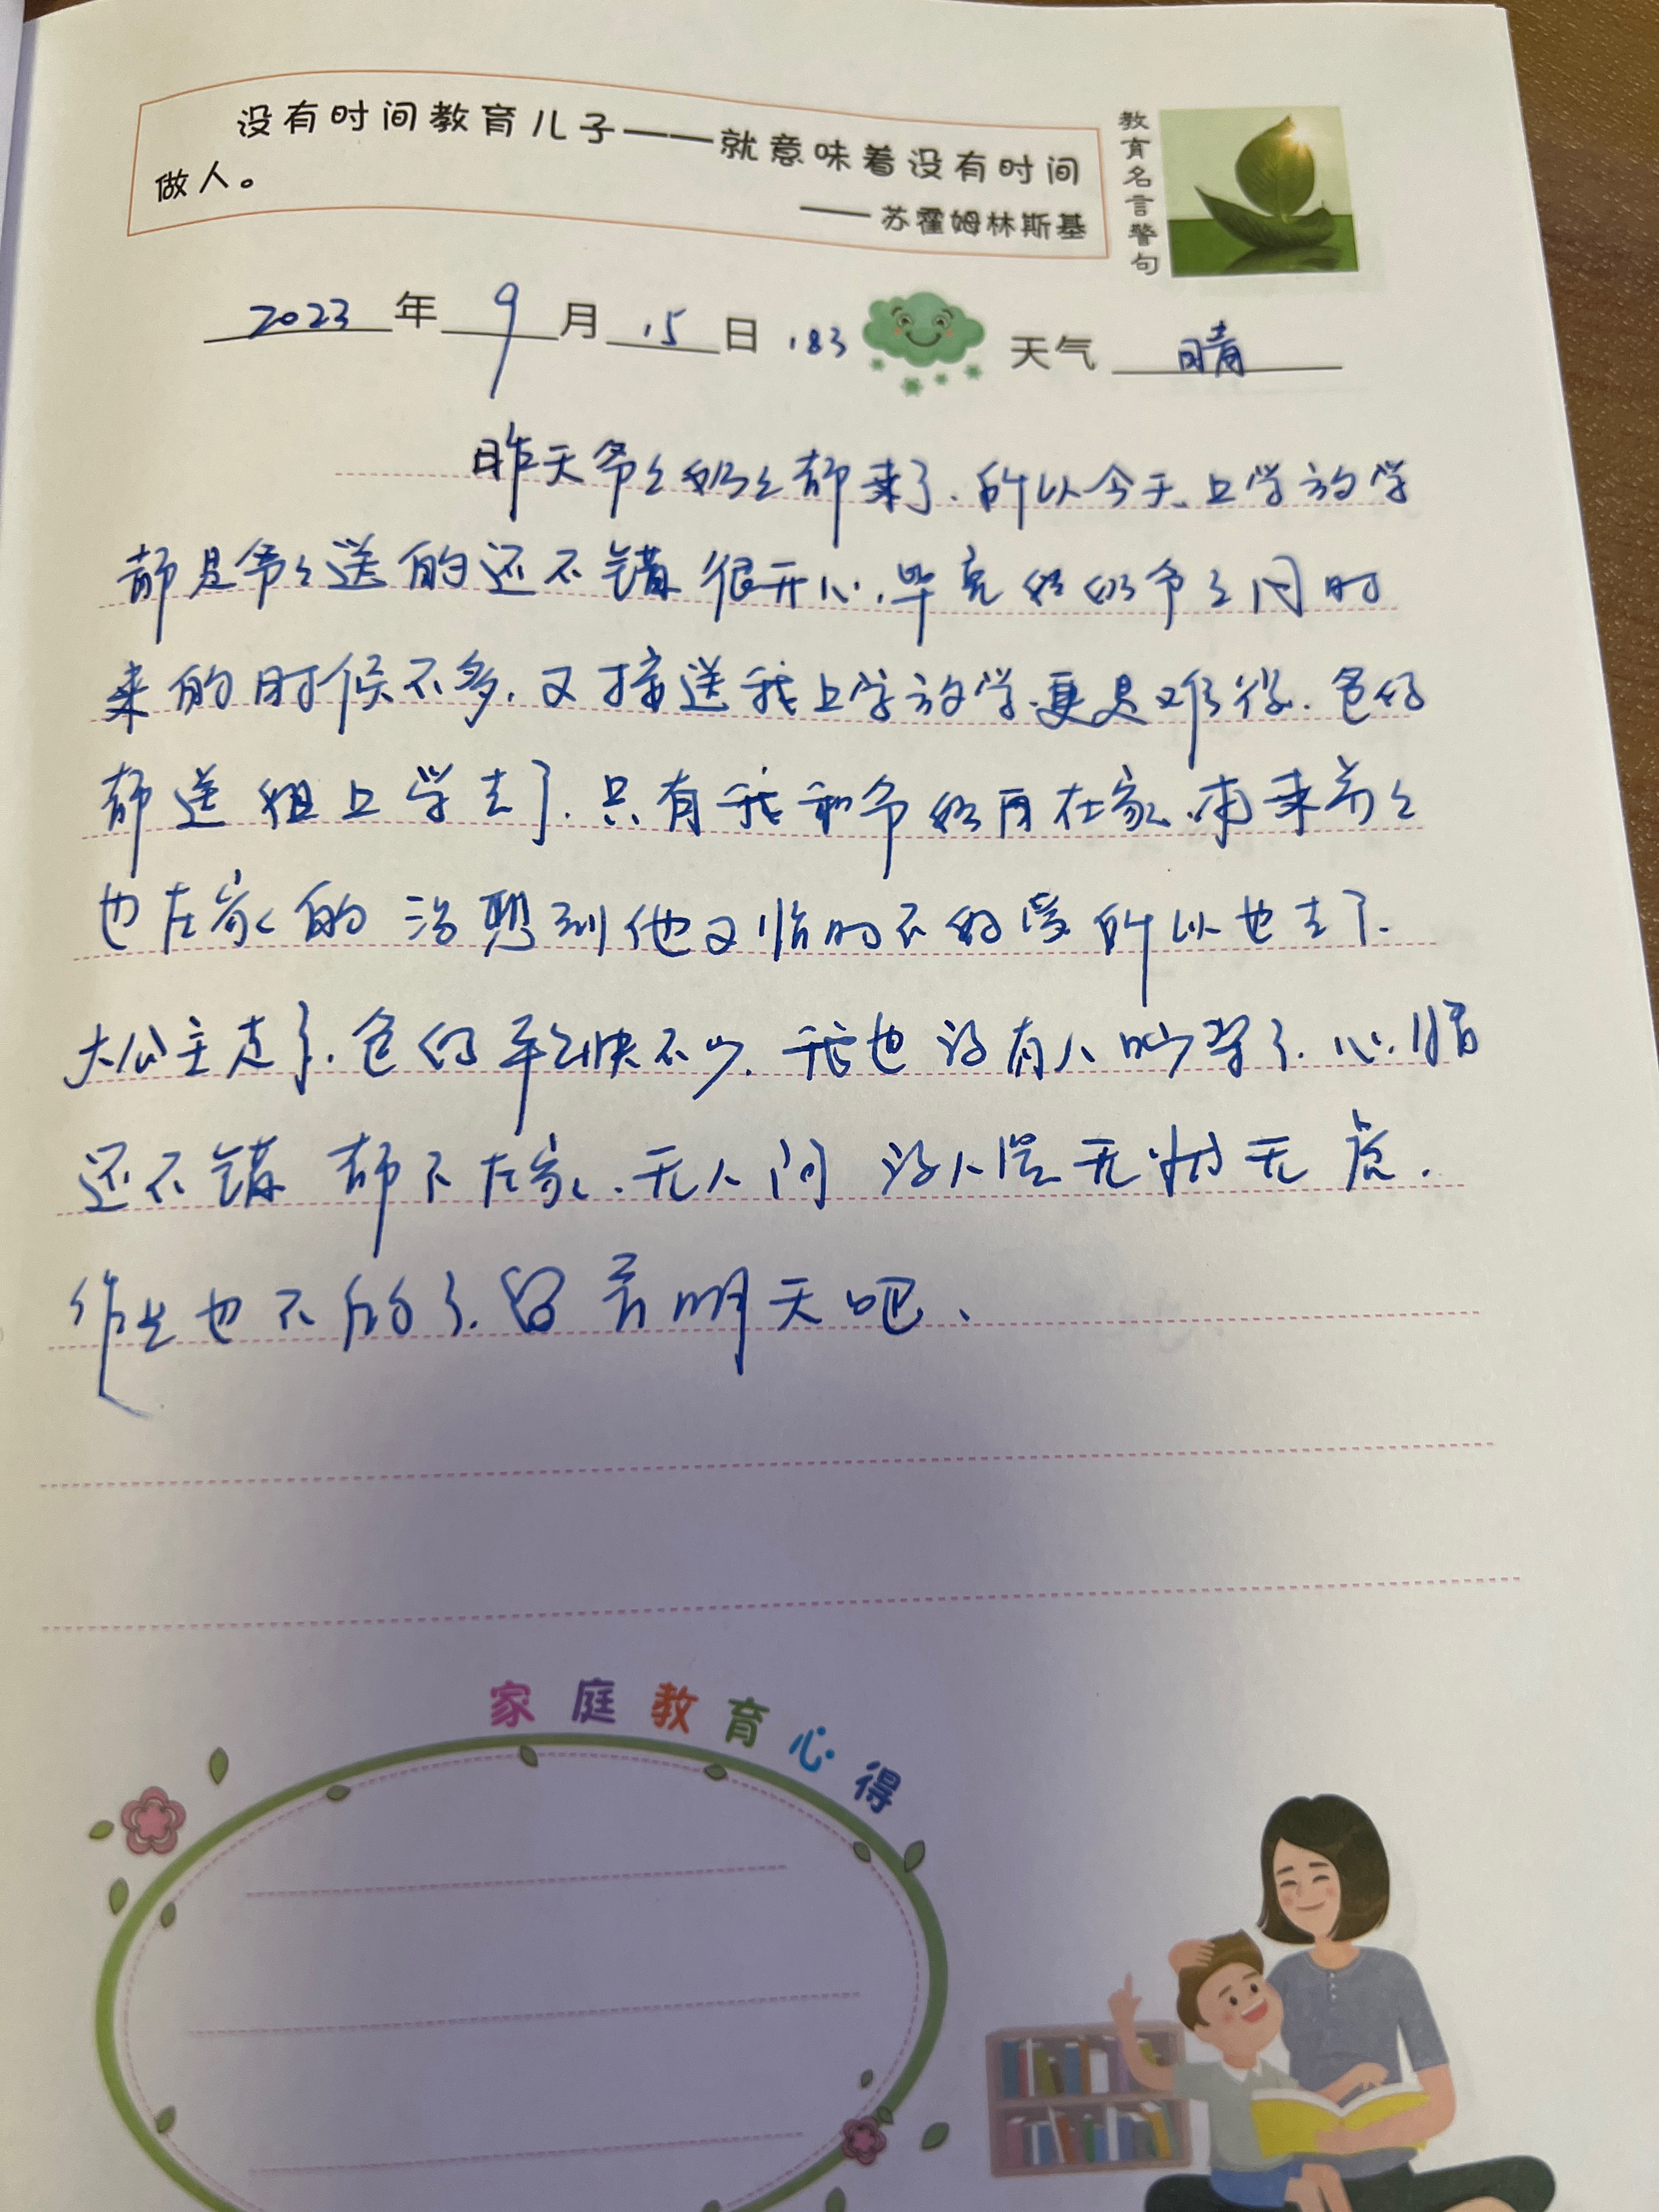 没有时间教育儿子——就意味着没有时间
做人。
——苏霍姆林斯基
教育名言警句
2023年9月15日 183 天气 晴
昨天爷々奶々都来了.所以今天上学放学
都是爷々送的还不错很开心.毕竟奶爷々同时
来的时候不多.又接送我上学放学.更是难得.爸妈
都送姐上学去了.只有我和爷奶再在家.本来爷々
也在家的 没想到他又临时不的爱所以也去了.
大公主走了.爸妈轻快不少.我也没有人吵架了.心情
还不错 都不在家.无人问 没人管无忧无虑.
作业也不的了.留着明天吧.
家庭教育心得